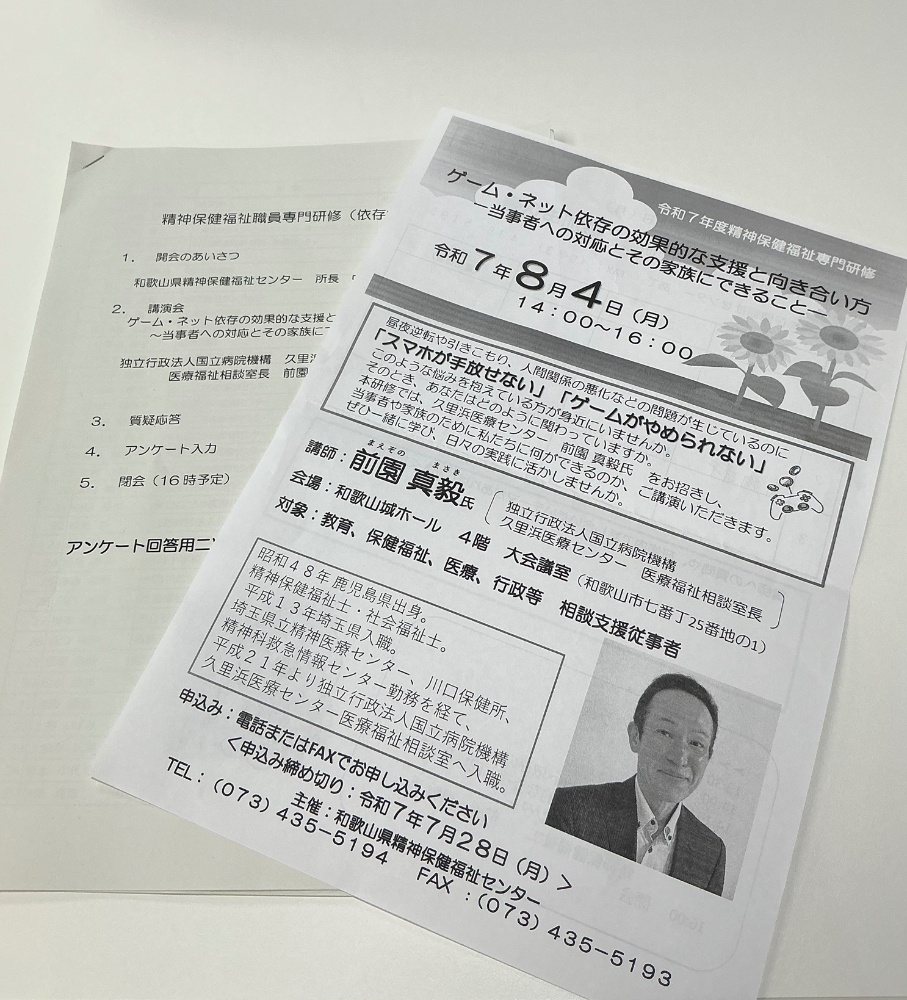 精神保健福祉職員専門研修（依存
1. 開会のあいさつ
和歌山県精神保健福祉センター 所長
2. 講演会
ゲーム・ネット依存の効果的な支援と
～当事者への対応とその家族に
独立行政法人国立病院機構 久里
医療福祉相談室長 前園
3. 質疑応答
4. アンケート入力
5. 閉会（16時予定）
アンケート回答用二
令和7年度精神保健福祉専門研修
ゲーム・ネット依存の効果的な支援と向き合い方
―当事者への対応とその家族にできること―
令和7年8月4日（月）
14：00～16：00
昼夜逆転や引きこもり、人間関係の悪化などの問題が生じているのに
「スマホが手放せない」「ゲームがやめられない」
このような悩みを抱えている方が身近にいませんか。
そのとき、あなたはどのように関わっていますか。
本研修では、久里浜医療センター 前園 真毅氏 をお招きし、
当事者や家族のために私たちに何ができるのか、ご講演いただきます。
ぜひ一緒に学び、日々の実践に活かしませんか。
まえぞの まさき
講師：前園 真毅氏
独立行政法人国立病院機構
久里浜医療センター 医療福祉相談室長
会場：和歌山城ホール 4階 大会議室（和歌山市七番丁25番地の1）
対象：教育、保健福祉、医療、行政等 相談支援従事者
昭和48年鹿児島県出身。
精神保健福祉士・社会福祉士。
平成13年埼玉県入職。
埼玉県立精神医療センター、川口保健所、
精神科救急情報センター勤務を経て、
平成21年より独立行政法人国立病院機構
久里浜医療センター医療福祉相談室へ入職。
申込み：電話またはFAXでお申し込みください
＜申込み締め切り：令和7年7月28日（月）＞
主催：和歌山県精神保健福祉センター
TEL：（073）435−5194 FAX：（073）435−5193